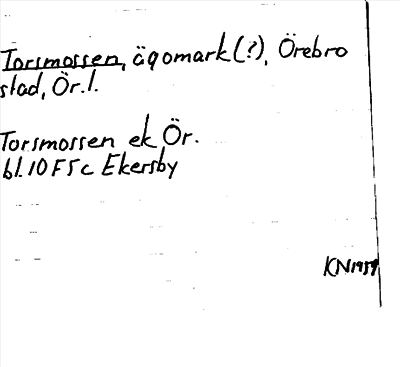 Torsmossen, ägomark(?), Örebro
stad, Ör. l.
Torsmossen ek Ör.
bl. 10 F 5 c Ekersby
KN 1959